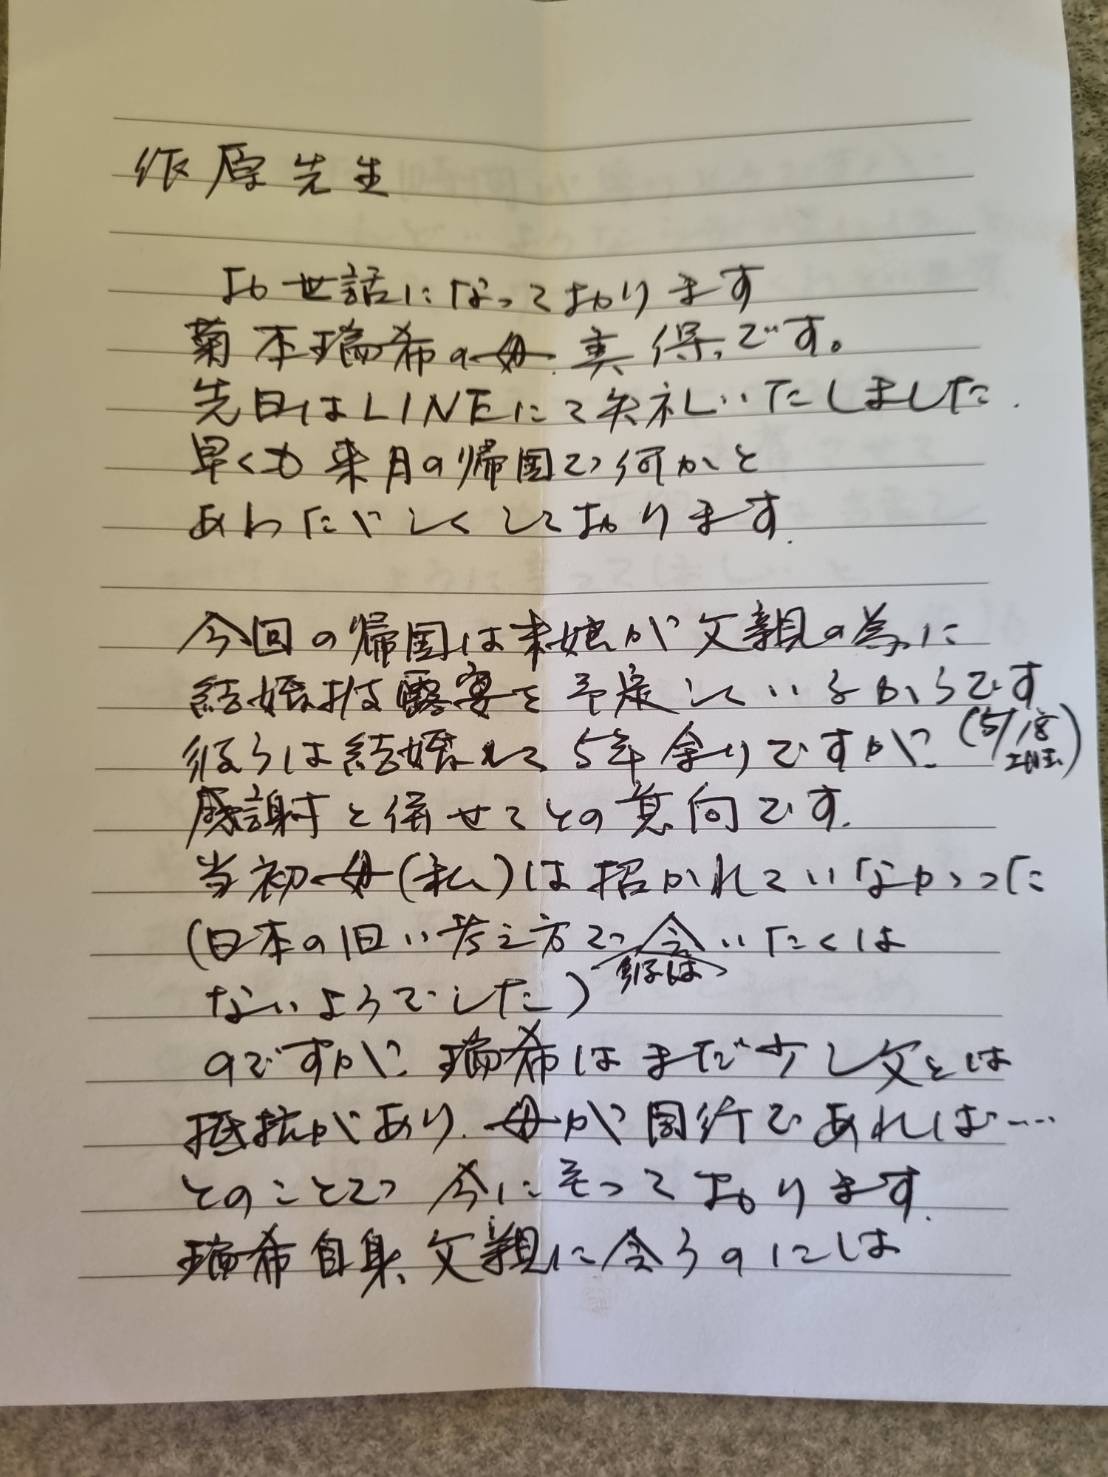 作原先生
お世話になっております
菊本瑞希の母 真保です。
先日はLINEにて失礼いたしました.
早くも来月の帰国で何かと
あわただしくしております.
今回の帰国は末娘が父親の為に
結婚披露宴を予定しているからです
(5/18
埼玉)
彼らは結婚して5年余りですが、
感謝と併せてとの意向です.
当初母(私)は招かれていなかった
(日本の旧い考え方で会いたくは
彼は
ないようでした)
のですが、瑞希はまだ少し父とは
抵抗があり、母が同行であれば…
とのことで今に至っております.
瑞希自身、父親に会うのには